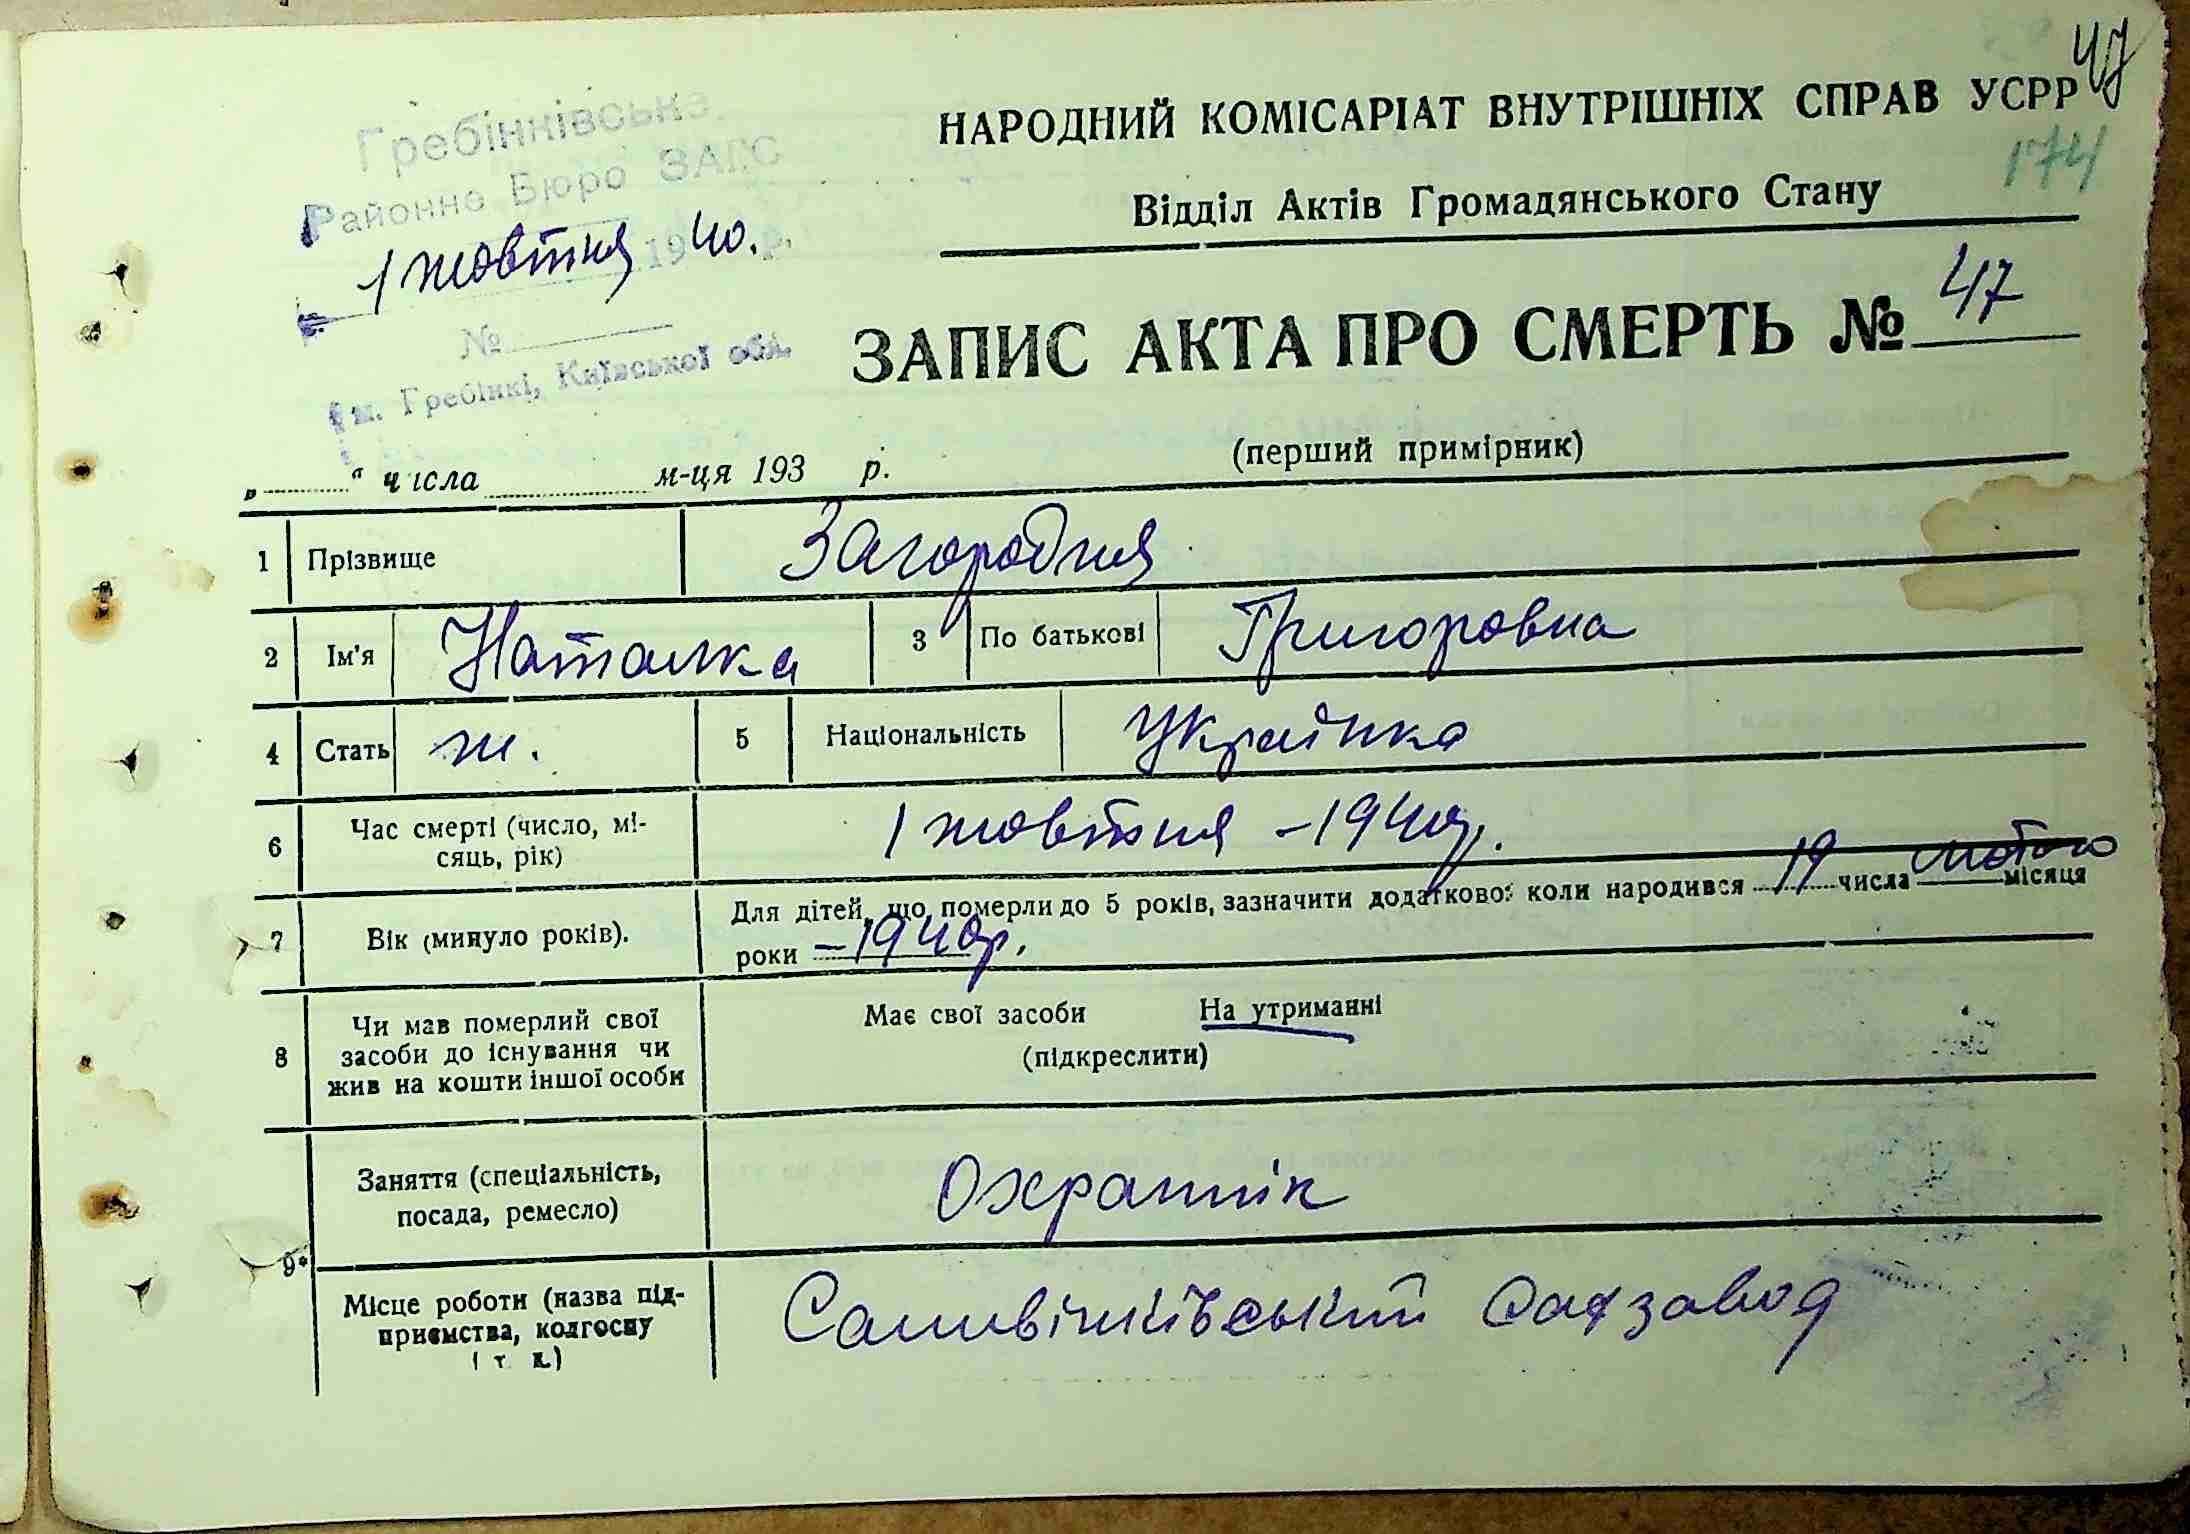 47
174
Гребінківське
Районне Бюро ЗАГС
1 жовтня 1940 р.
№
м. Гребінкі, Київської обл.
НАРОДНИЙ КОМІСАРІАТ ВНУТРІШНІХ СПРАВ УСРР
Відділ Актів Громадянського Стану
ЗАПИС АКТА ПРО СМЕРТЬ № 47
(перший примірник)
„ “ числа м-ця 193 р.
1 Прізвище Загородня
2 Ім'я Наталка 3 По батькові Григоровна
4 Стать ж. 5 Національність Українка
6 Час смерті (число, мі-
сяць, рік) 1 жовтня – 1940р.
7 Вік (минуло років). Для дітей, що померли до 5 років, зазначити додатково: коли народився 19 числа лютого місяця
роки – 1940р.
8 Чи мав померлий свої
засоби до існування чи
жив на кошти іншої особи
Має свої засоби На утриманні
(підкреслити)
9 Заняття (спеціальність,
посада, ремесло) Охранник
Місце роботи (назва під-
приємства, колгоспу
і т. д.) Саливінківський завод